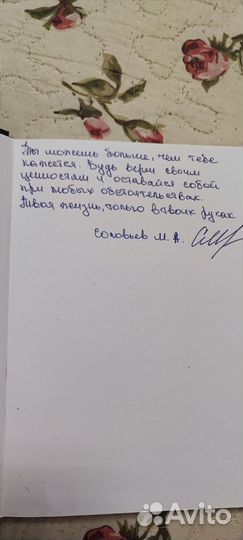 Ты можешь больше, чем тебе
кажется. Будь верен своим
ценностям и оставайся собой
при любых обстоятельствах.
Твоя жизнь, только в твоих руках
Соловьев М. А.
Avito